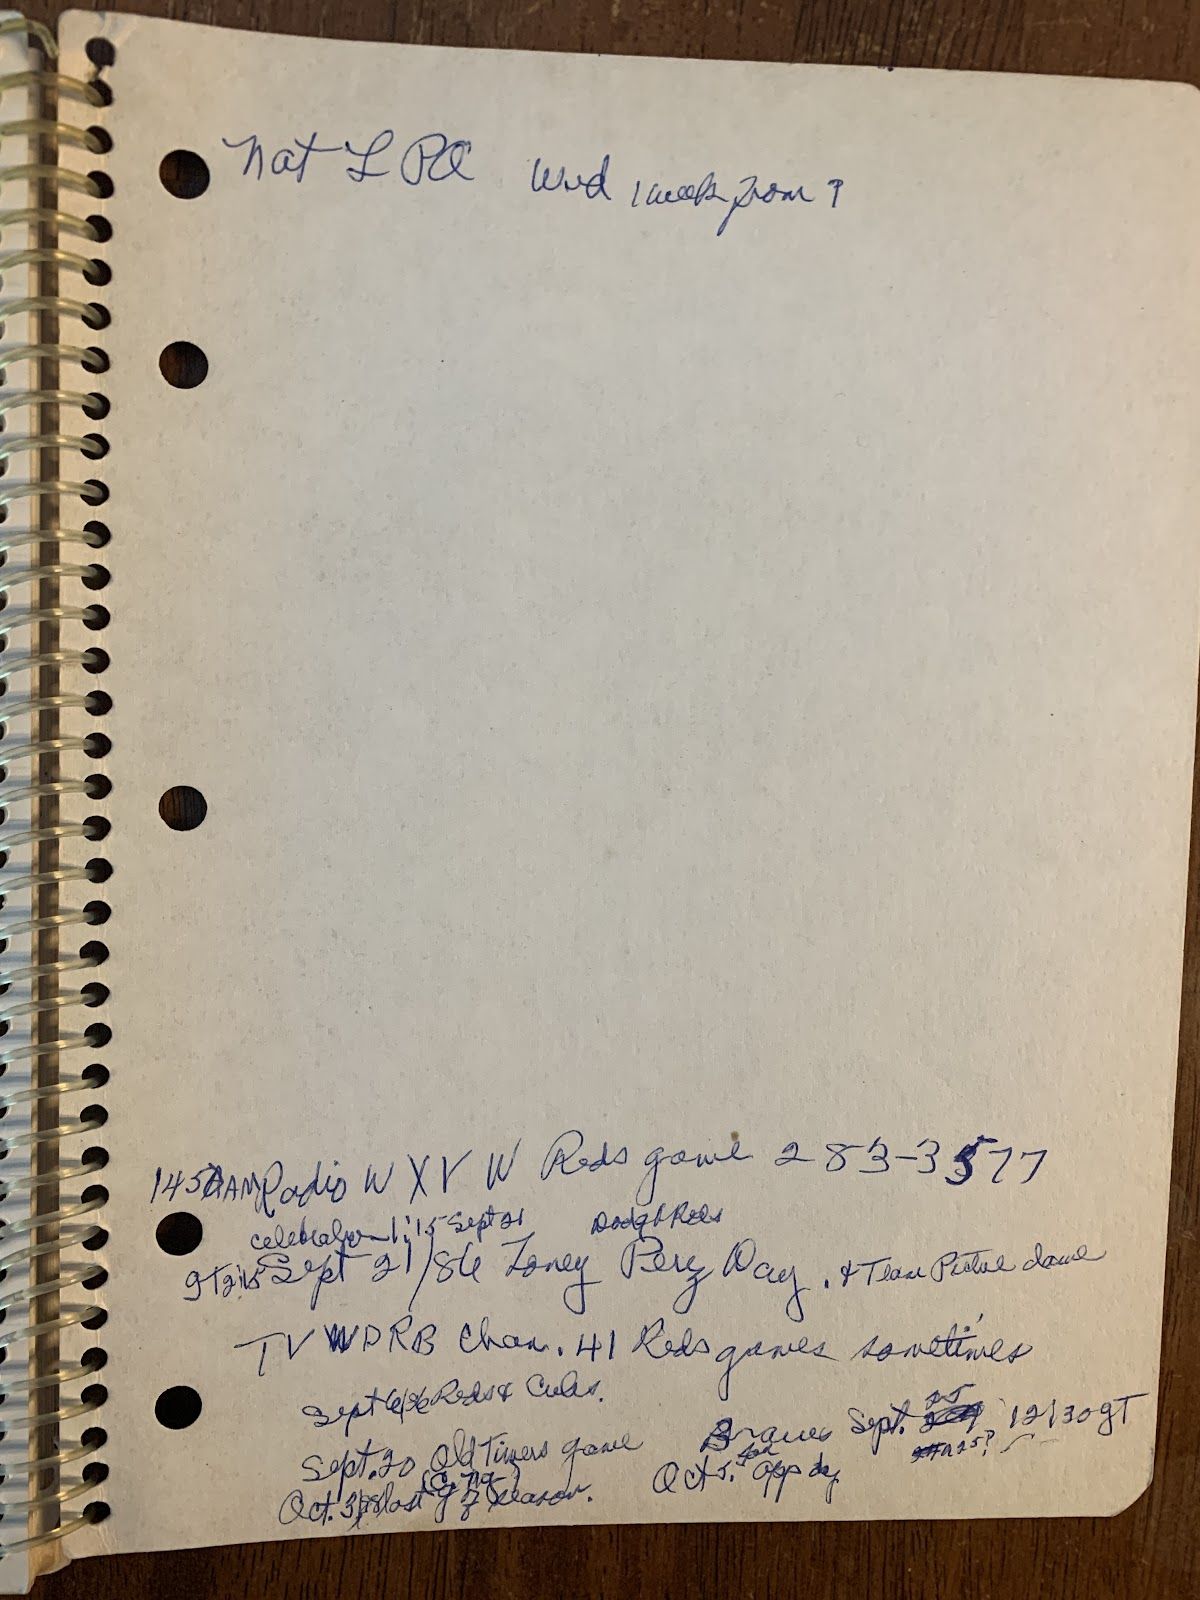 Nat L PO Wed 1 week from ?
1450AM Radio W X V W Reds game 283-3577
celebration 1:15 Sept 21 Dodg & Reds
GT 2:15 Sept 21/86 Toney Perz Day. & Team Picture
TV WDRB Chan. 41 Reds games sometimes
Sept 6/86 Reds & Cubs.
Sept. 20 Old Timers game
Braves Sept. 25 12:30 GT
Oct. last g season.
Oct 5. fan app day